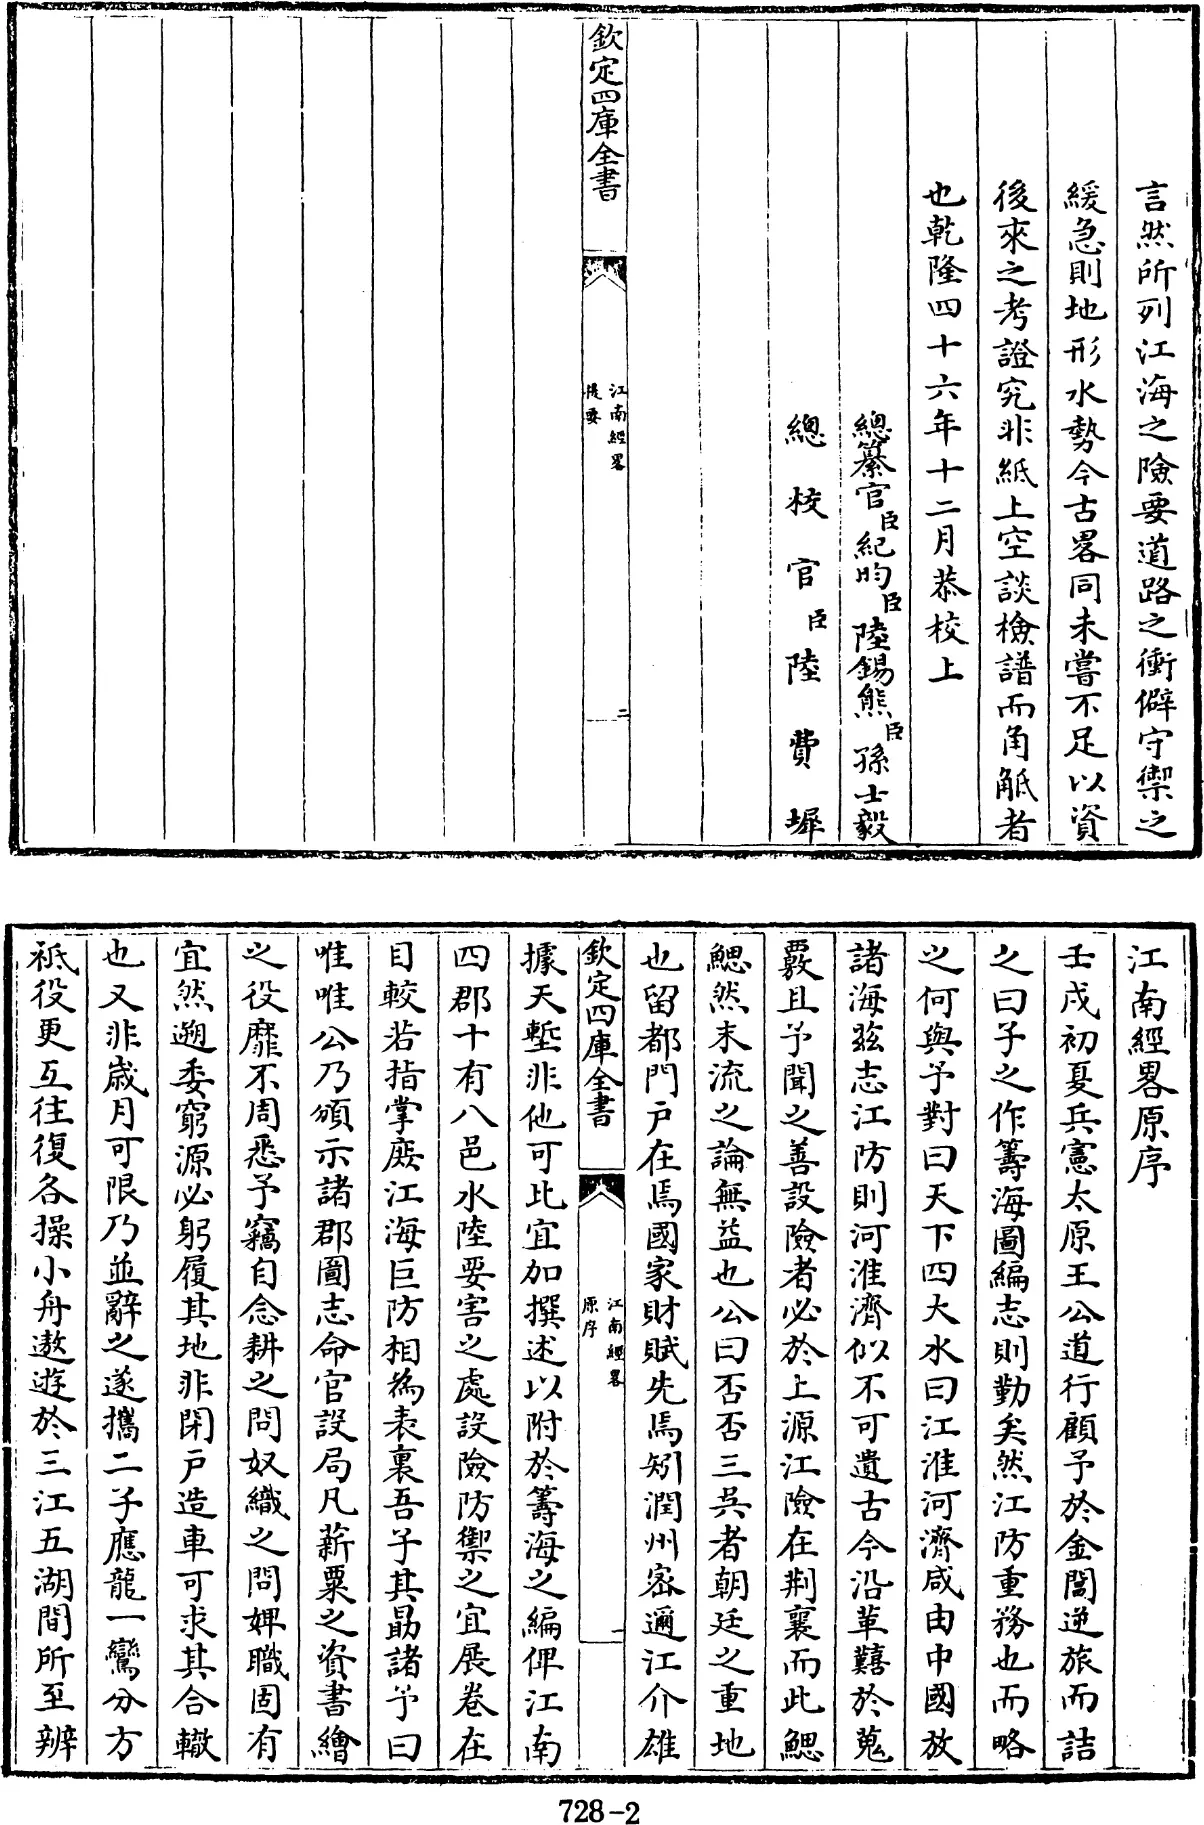 言然所列江海之險要道路之衝僻守禦之
緩急則地形水勢今古畧同未嘗不足以資
後來之考證究非紙上空談檢譜而角觝者
也乾隆四十六年十二月恭校上
總纂官臣紀昀臣陸錫熊臣孫士毅
總校官臣陸費墀
欽定四庫全書
江南經畧
提要
二
江南經畧原序
壬戌初夏兵憲太原王公道行顧予於金閶逆旅而詰
之曰子之作籌海圖編志則勤矣然江防重務也而略
之何與予對曰天下四大水曰江淮河濟咸由中國放
諸海兹志江防則河淮濟似不可遺古今沿革囏於蒐
覈且予聞之善設險者必於上源江險在荆襄而此鰓
鰓然末流之論無益也公曰否否三吳者朝廷之重地
也留都門户在焉國家財賦先焉矧潤州密邇江介雄
欽定四庫全書
江南經畧
原序
一
據天塹非他可比宜加撰述以附於籌海之編俾江南
四郡十有八邑水陸要害之處設險防禦之宜展卷在
目較若指掌庶江海巨防相為表裏吾子其勗諸予曰
唯唯公乃頒示諸郡圖志命官設局凡薪粟之資書繪
之役靡不周悉予竊自念耕之問奴織之問婢職固有
宜然遡委窮源必躬履其地非閉户造車可求其合轍
也又非歲月可限乃並辭之遂攜二子應龍一鸞分方
祇役更互往復各操小舟遨遊於三江五湖間所至辨
728-2